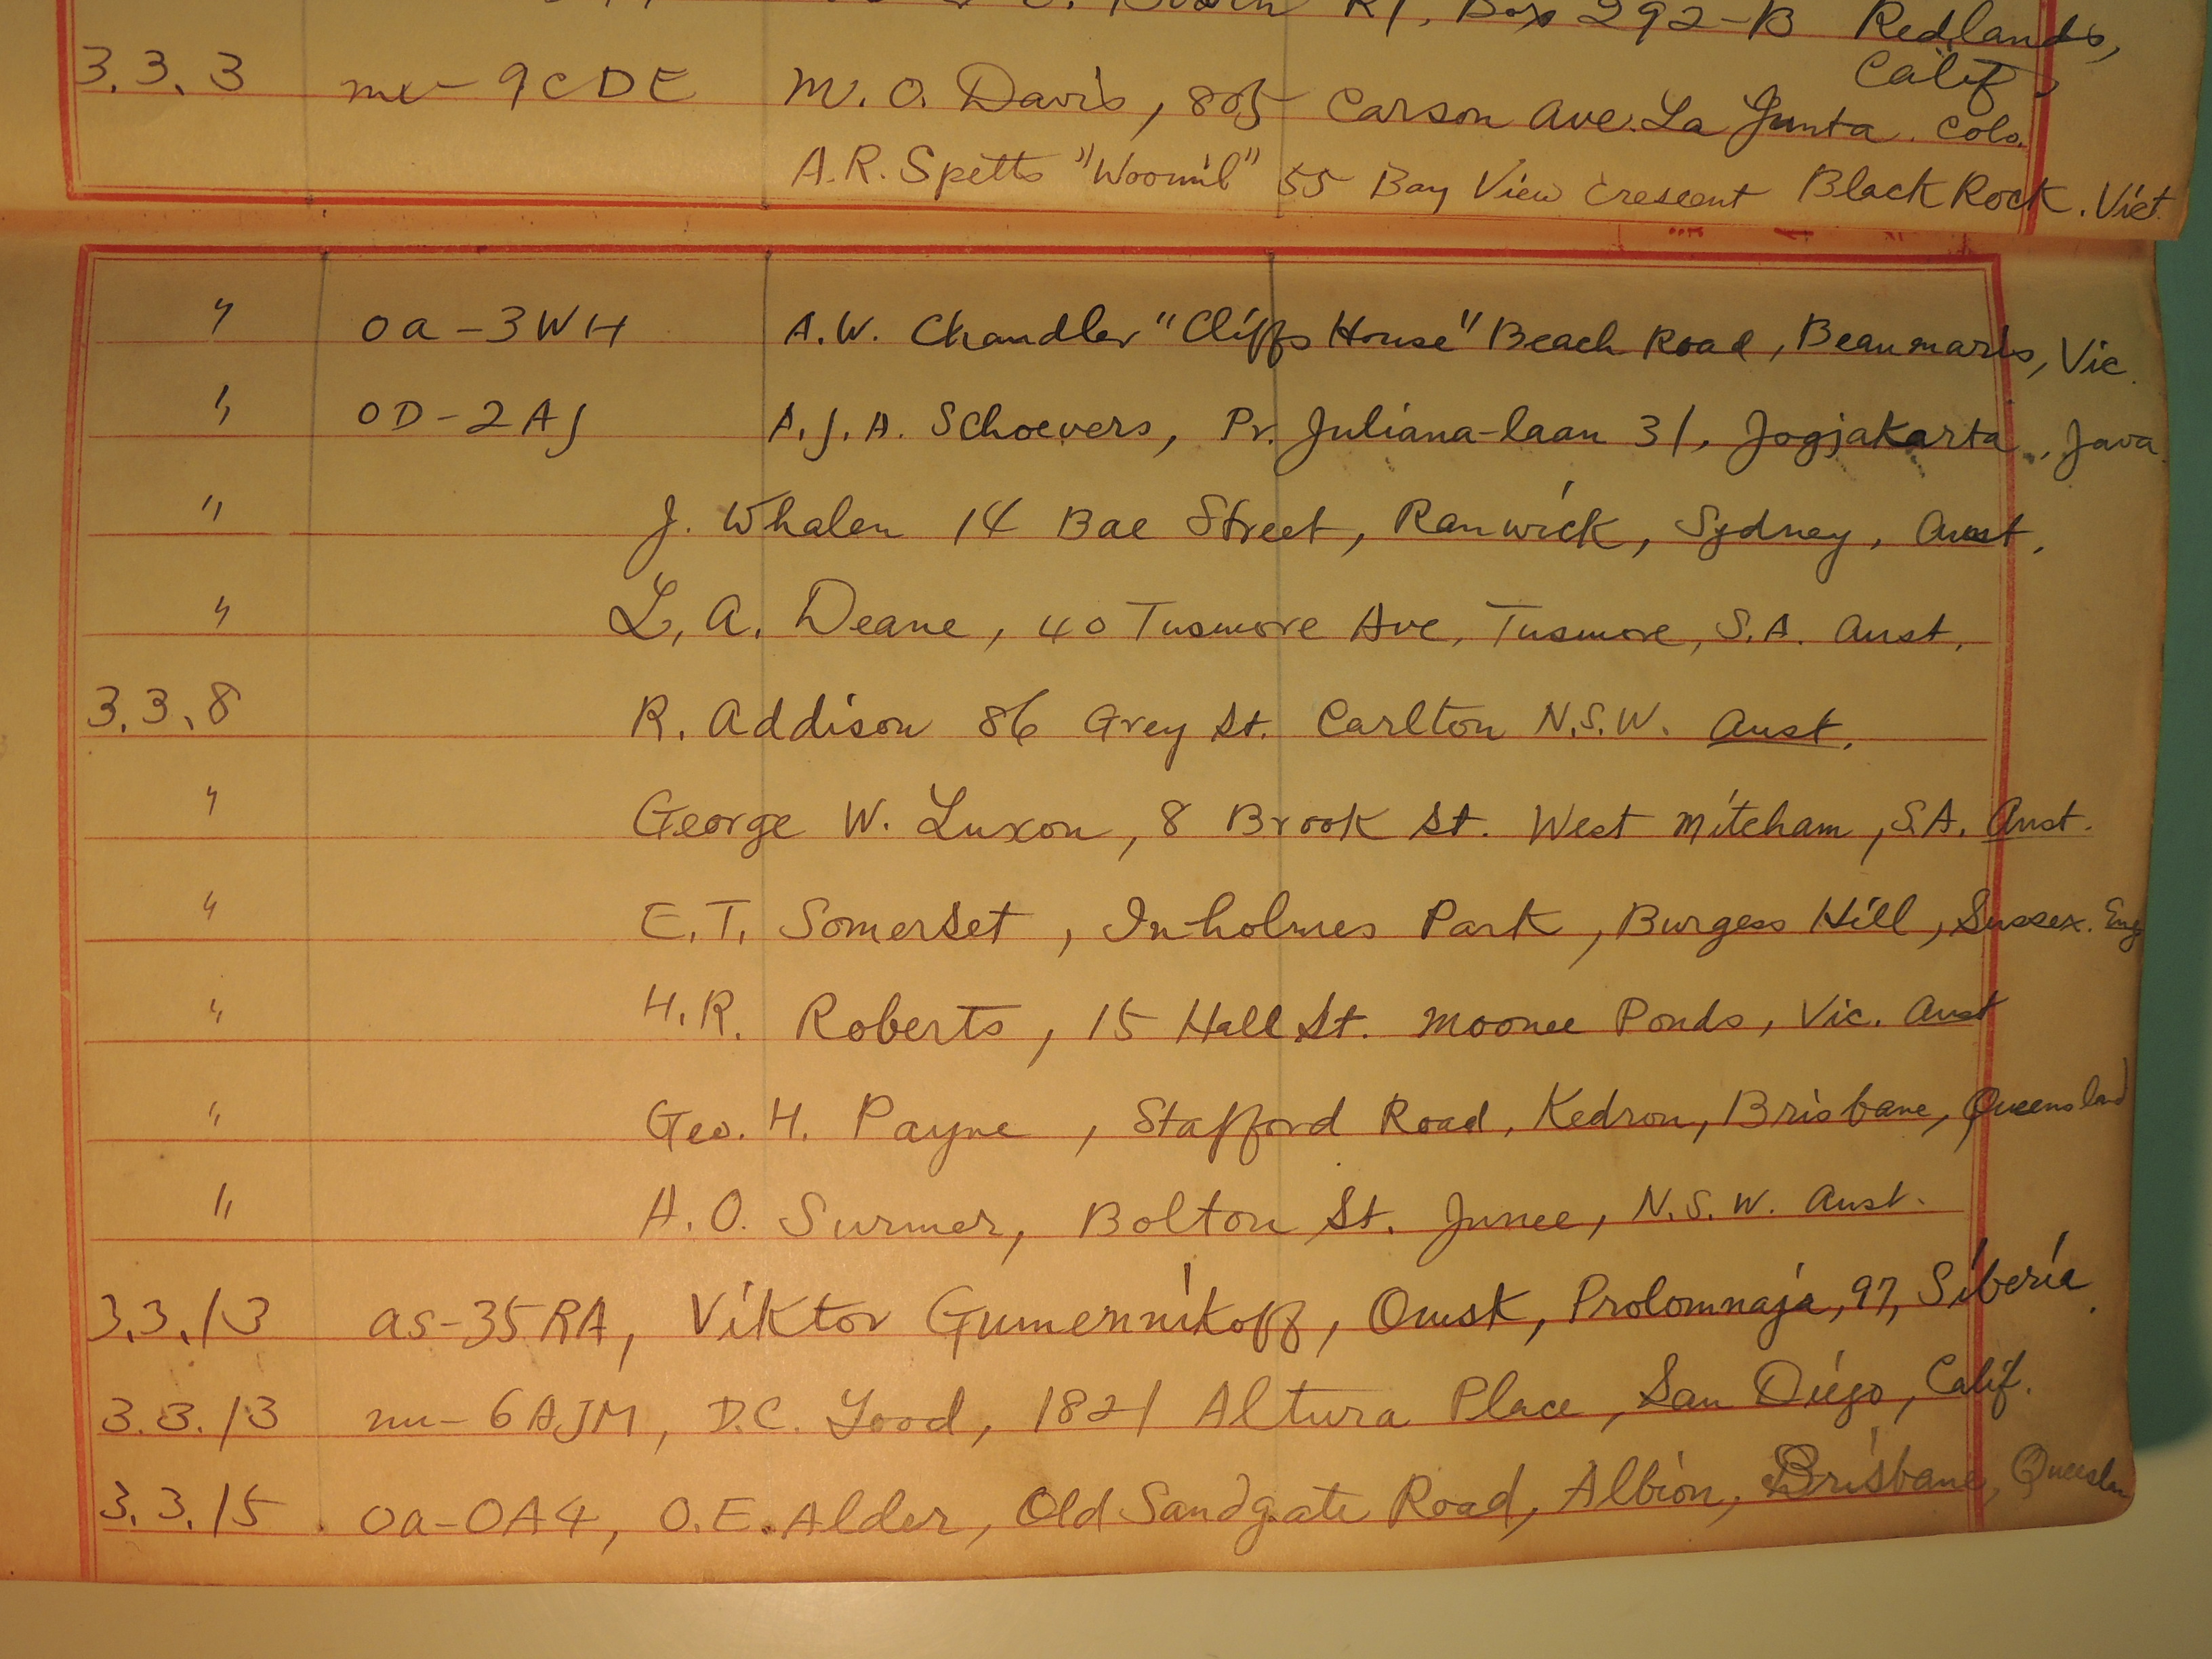 R1, Box 292-B Redlands,
Calif,
3.3.3 nu- 9CDE M. O. Davis, 805 Carson Ave. La Junta. Colo.
A.R. Spetts "Woomil" 55 Bay View Crescent Black Rock. Vict.
" oa-3WH A.W. Chandler "Cliffs House" Beach Road, Beaumaris, Vic.
" OD-2AJ A.J.A. Schoevers, Pr. Juliana-laan 31, Jogjakarta, Java
" J. Whalen 14 Bae Street, Ranwick, Sydney, Aust.
" L, A. Deane, 40 Tusmore Ave, Tusmore, S.A. Aust.
3.3.8 R. Addison 86 Grey St. Carlton N.S.W. Aust.
" George W. Luxon, 8 Brook St. West Mitcham, S.A. Aust.
" E.T. Somerset, Inholmes Park, Burgess Hill, Sussex. Eng
" H.R. Roberts, 15 Hall St. Moonee Ponds, Vic. Aust
" Geo. H. Payne, Stafford Road, Kedron, Brisbane, Queensland
" A.O. Surmer, Bolton St. Junee, N.S.W. Aust.
3.3.13 as-35RA, Viktor Gumennikoff, Omsk, Prolomnaja, 97, Siberia.
3.3.13 nu-6AJM, D.C. Yood, 1821 Altura Place, San Diego, Calif.
3.3.15 oa-OA4, O.E. Alder, Old Sandgate Road, Albion, Brisbane,